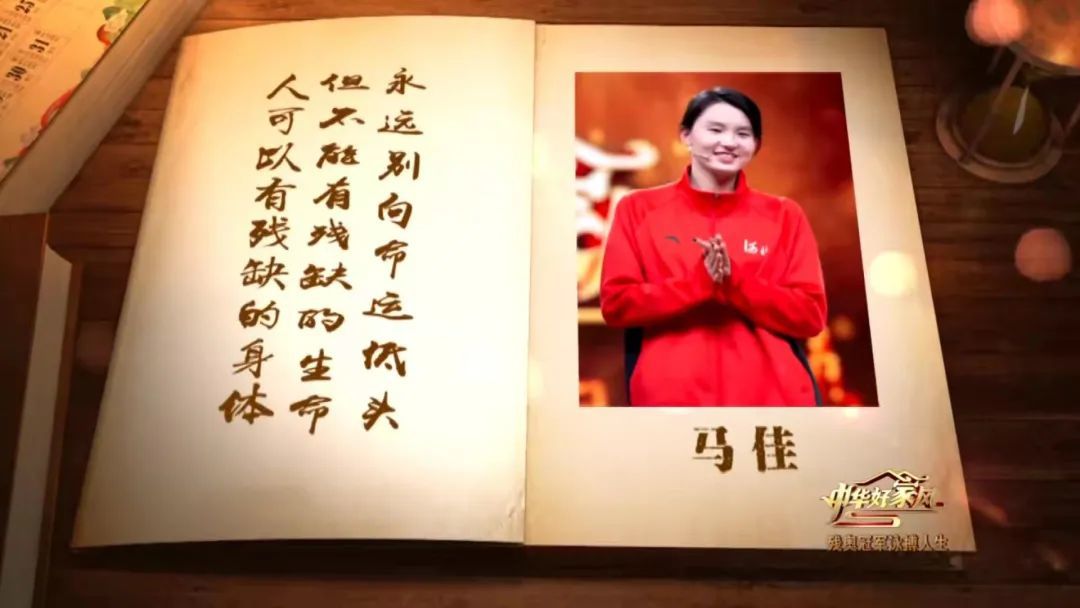 人可以有残缺的身体
但不能有残缺的生命
永远别向命运低头
马佳
中华好家风
残奥冠军泳搏人生
30
31